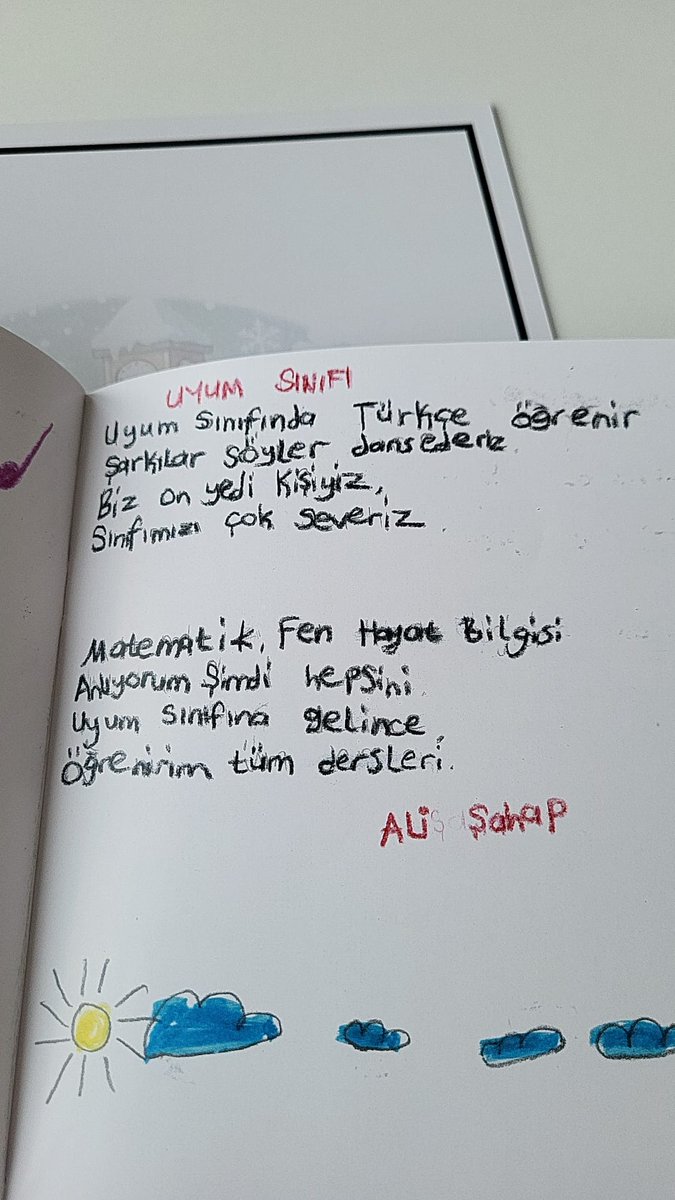 UYUM SINIFI
Uyum Sınıfında Türkçe öğrenir
Şarkılar Söyler dans ederiz.
Biz on yedi Kişiyiz,
Sınıfımızı çok severiz.
Matematik, Fen Hayat Bilgisi
Anlıyorum Şimdi hepsini.
Uyum Sınıfına gelince,
Öğrenirim tüm dersleri.
ALİ Şahap